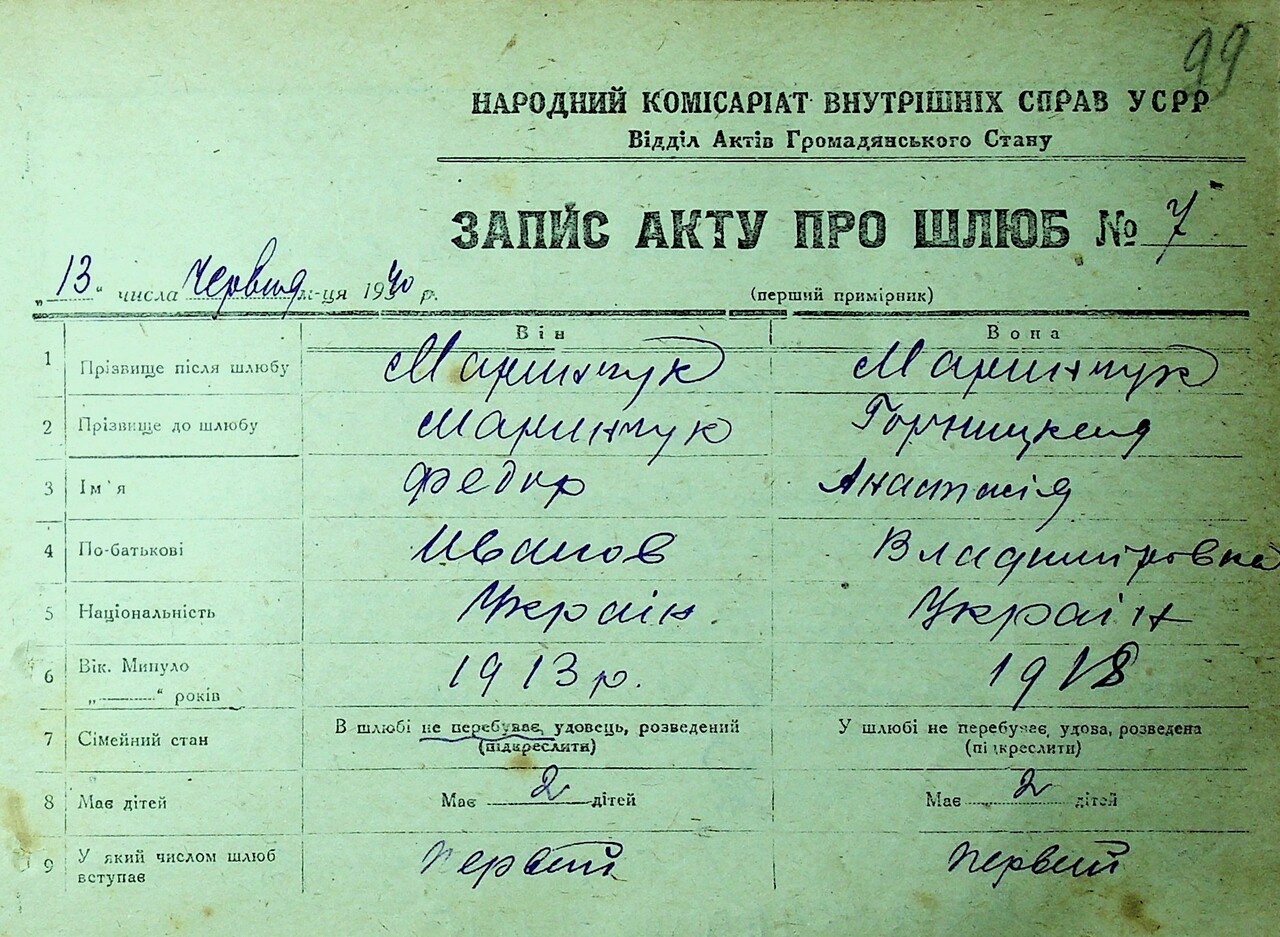 99
НАРОДНИЙ КОМІСАРІАТ ВНУТРІШНІХ СПРАВ УСРР
Відділ Актів Громадянського Стану
ЗАПИС АКТУ ПРО ШЛЮБ № 7
„13“ числа Червня м-ця 1940 р.
(перший примірник)
Він Вона
1 Прізвище після шлюбу Маринчук Маринчук
2 Прізвище до шлюбу Маринчук
3 Ім'я Федор Анастасія
4 По-батькові Иванов Владиміровна
5 Національність Україн. Україн
6 Вік. Минуло 1913 р. 1918
„———“ років
7 Сімейний стан В шлюбі не перебуває, удовець, розведений У шлюбі не перебуває, удова, розведена
(підкреслити) (підкреслити)
8 Має дітей Має 2 дітей Має 2 дітей
9 У який числом шлюб Первий Первий
вступав